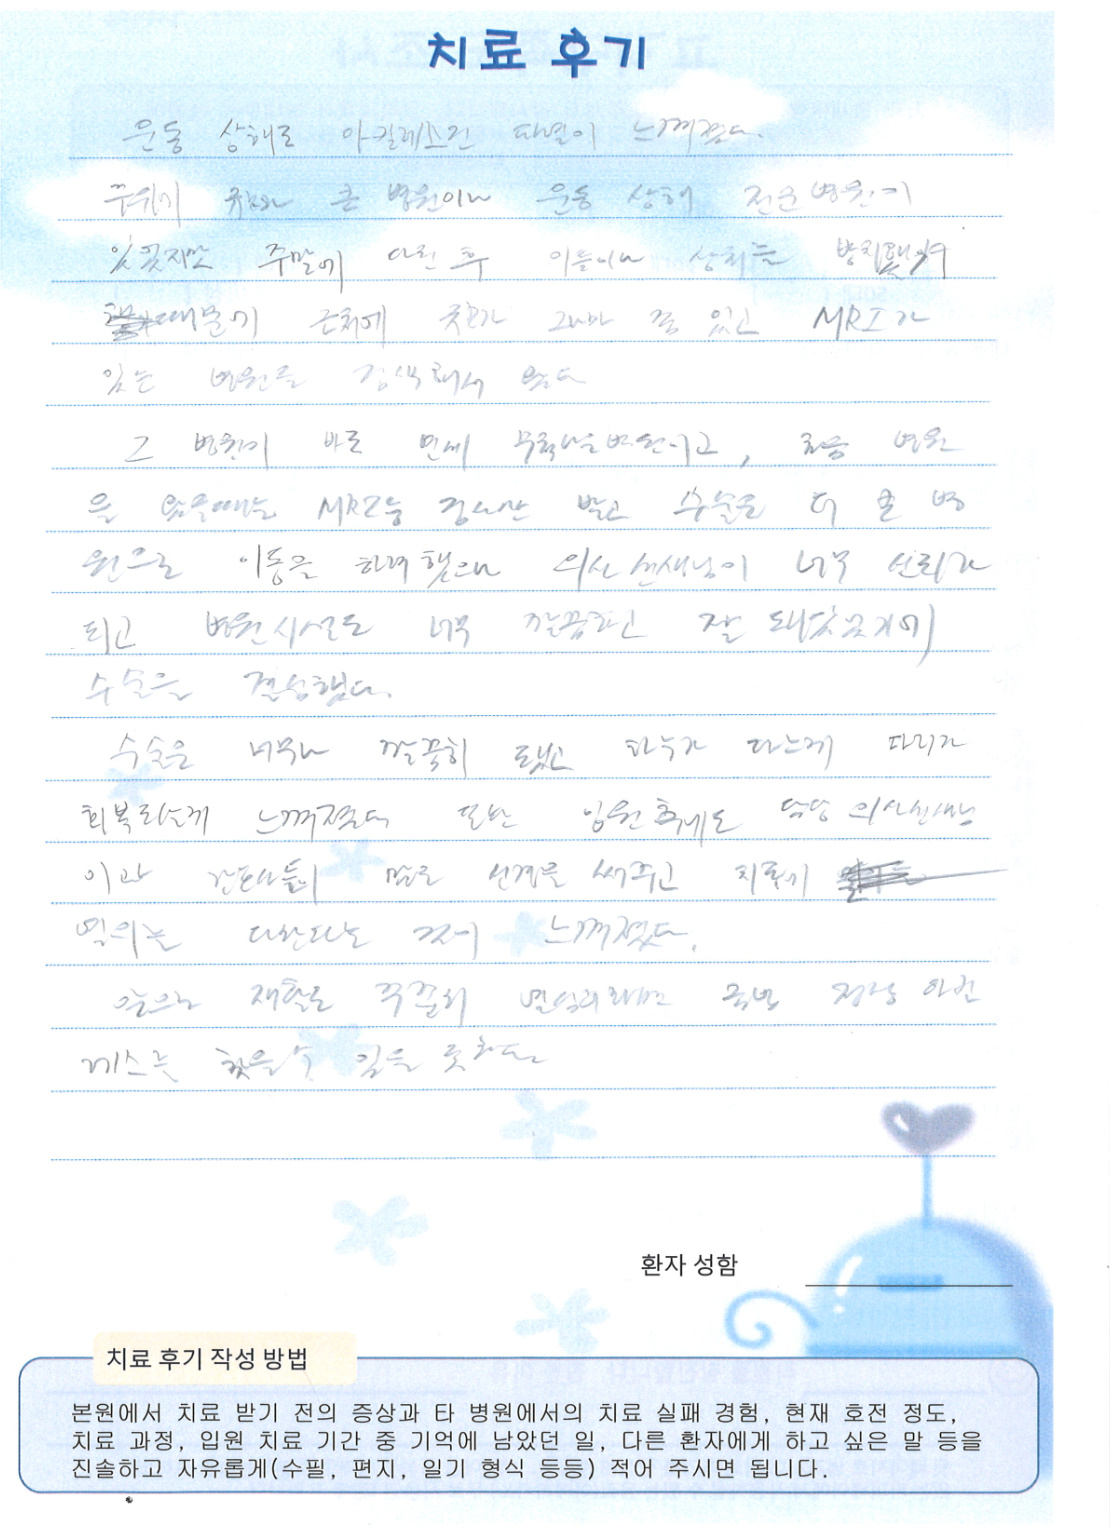 치료 후기
운동 상해로 아킬레스건 파열이 느껴졌다.
주위에 큰 병원이나 운동 상해 전문병원이
있었지만 주말에 다친 후 이틀이나 상처를
때문에 근처에 그나마 좀 있고 MRI가
있는 병원을 검색해서 왔다
그 병원이 바로 병원이고, 처음 병원
을 왔을때는 MRI 검사만 받고 수술은 더 큰 병
원으로 이동을 하려 했으나 의사 선생님이 너무 신뢰가
되고 병원시설도 너무 깔끔하고 잘
수술을 결심했다.
수술은 너무나 깔끔히 됐고 하루가 다르게 다리가
회복되는게 느껴졌다 또한 입원 후에도 담당 의사선생님
이과 간호사들이 신경을 써주고 치료에
열의를 다한다는 것이 느껴졌다.
앞으로 재활도 꾸준히 정상 아킬
레스를 찾을 수 있을 듯하다.
환자 성함
치료 후기 작성 방법
본원에서 치료 받기 전의 증상과 타 병원에서의 치료 실패 경험, 현재 호전 정도,
치료 과정, 입원 치료 기간 중 기억에 남았던 일, 다른 환자에게 하고 싶은 말 등을
진솔하고 자유롭게(수필, 편지, 일기 형식 등등) 적어 주시면 됩니다.